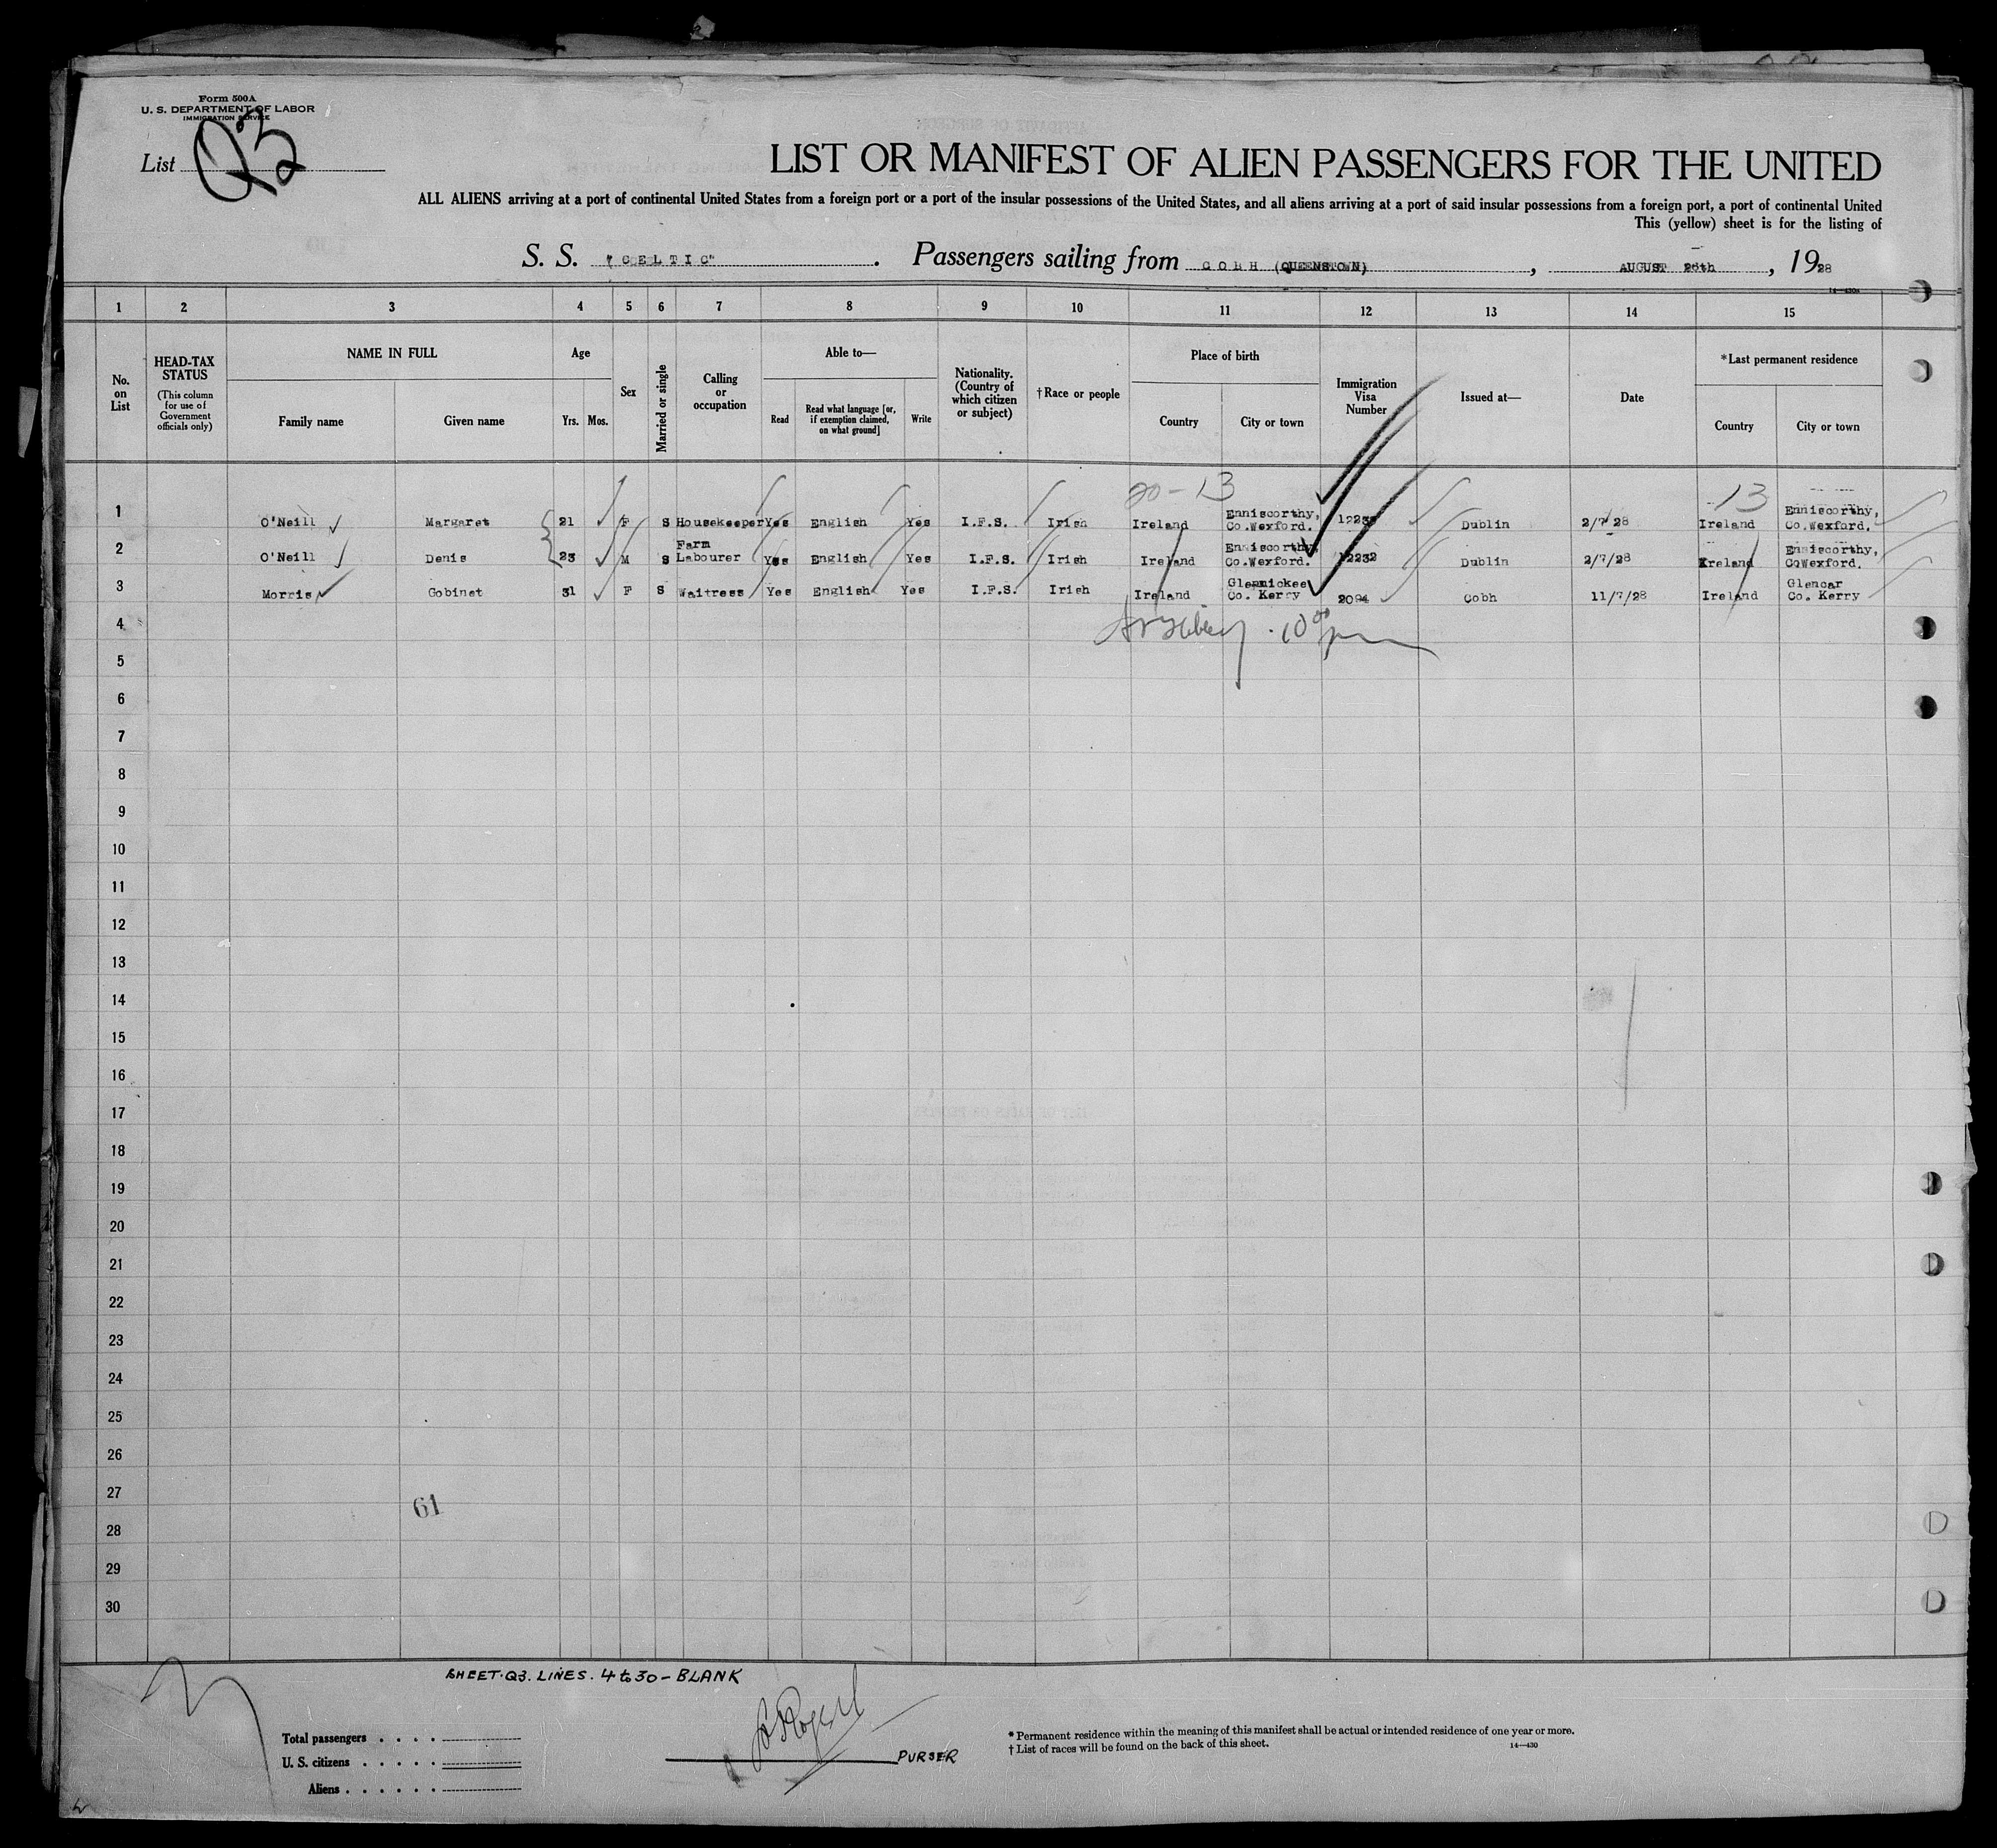 Form 500A
U. S. DEPARTMENT OF LABOR
IMMIGRATION SERVICE
List Q3
LIST OR MANIFEST OF ALIEN PASSENGERS FOR THE UNITED
ALL ALIENS arriving at a port of continental United States from a foreign port or a port of the insular possessions of the United States, and all aliens arriving at a port of said insular possessions from a foreign port, a port of continental United
This (yellow) sheet is for the listing of
S. S. "CELTIC". Passengers sailing from COBH (QUEENSTOWN), AUGUST 26th, 1928
1 2 3 4 5 6 7 8 9 10 11 12 13 14 15
No. on List
HEAD-TAX STATUS
(This column for use of Government officials only)
NAME IN FULL
Family name Given name
Age
Yrs. Mos.
Sex
Married or single
Calling or occupation
Able to—
Read
Read what language [or, if exemption claimed, on what ground]
Write
Nationality. (Country of which citizen or subject)
†Race or people
Place of birth
Country City or town
Immigration Visa Number
Issued at—
Date
*Last permanent residence
Country City or town
20-13 13
1 O'Neill Margaret 21 F S Housekeeper Yes English Yes I.F.S. Irish Ireland Enniscorthy, Co.Wexford. Dublin 2/7/28 Ireland Enniscorthy, Co.Wexford.
2 O'Neill Denis 23 M S Farm Labourer Yes English Yes I.F.S. Irish Ireland Enniscorthy, Co.Wexford. 12232 Dublin 2/7/28 Ireland Enniscorthy, CoWexford.
3 Morris Gobinet 31 F S Waitress Yes English Yes I.F.S. Irish Ireland Glennickee Co. Kerry 2094 Cobh 11/7/28 Ireland Glencar Co. Kerry
4
5
6
7
8
9
10
11
12
13
14
15
16
17
18
19
20
21
22
23
24
25
26
27
61
28
29
30
SHEET.Q3. LINES. 4 to 30 - BLANK
Total passengers . . . .
U. S. citizens . . . . .
Aliens . . . . . .
PURSER
* Permanent residence within the meaning of this manifest shall be actual or intended residence of one year or more.
† List of races will be found on the back of this sheet.
14—430